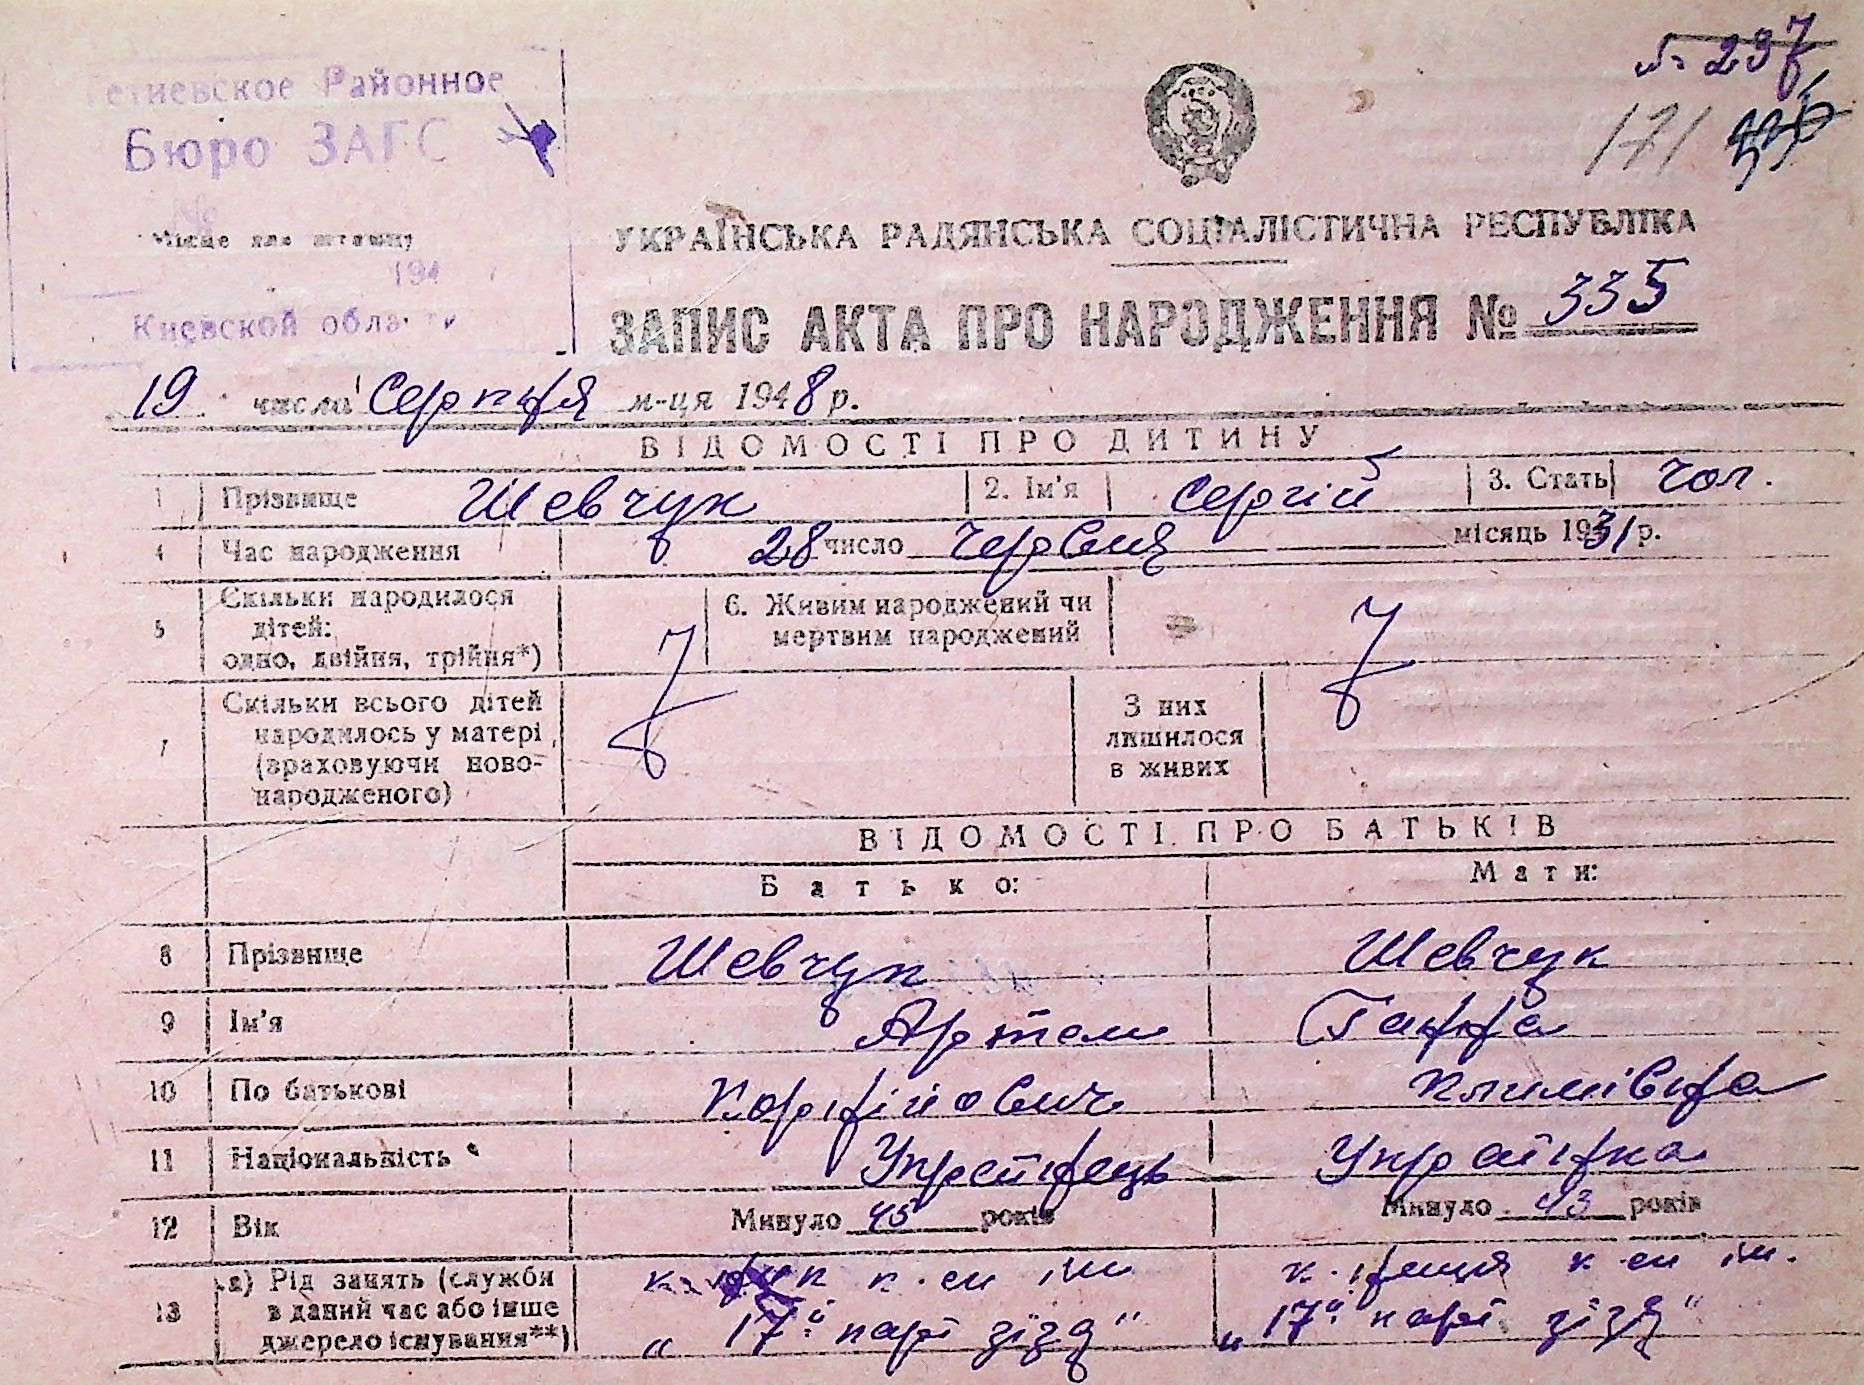 № 237
171
Районное
Бюро ЗАГС
Місце для штампу
194
Киевской области
УКРАЇНСЬКА РАДЯНСЬКА СОЦІАЛІСТИЧНА РЕСПУБЛІКА
ЗАПИС АКТА ПРО НАРОДЖЕННЯ № 335
19 числа Серпня м-ця 1948 р.
ВІДОМОСТІ ПРО ДИТИНУ
1 Прізвище Шевчук 2. Ім'я Сергій 3. Стать чол.
4 Час народження 28 число Червня місяць 1931 р.
5 Скільки народилося
дітей:
одно, двійня, трійня*)
6. Живим народжений чи
мертвим народжений
7 Скільки всього дітей
народилось у матері
(враховуючи ново-
народженого)
З них
лишилося
в живих
ВІДОМОСТІ ПРО БАТЬКІВ
Батько: Мати:
8 Прізвище Шевчук Шевчук
9 Ім'я Артем Ганна
10 По батькові Корнійович Климівна
11 Національність Українець Українка
12 Вік Минуло 45 років Минуло 43 років
13 а) Рід занять (служби
в даний час або інше
джерело існування**)
к-сп ім к-сп ім.
„17й парт зїзд" „17й парт. зїзд"